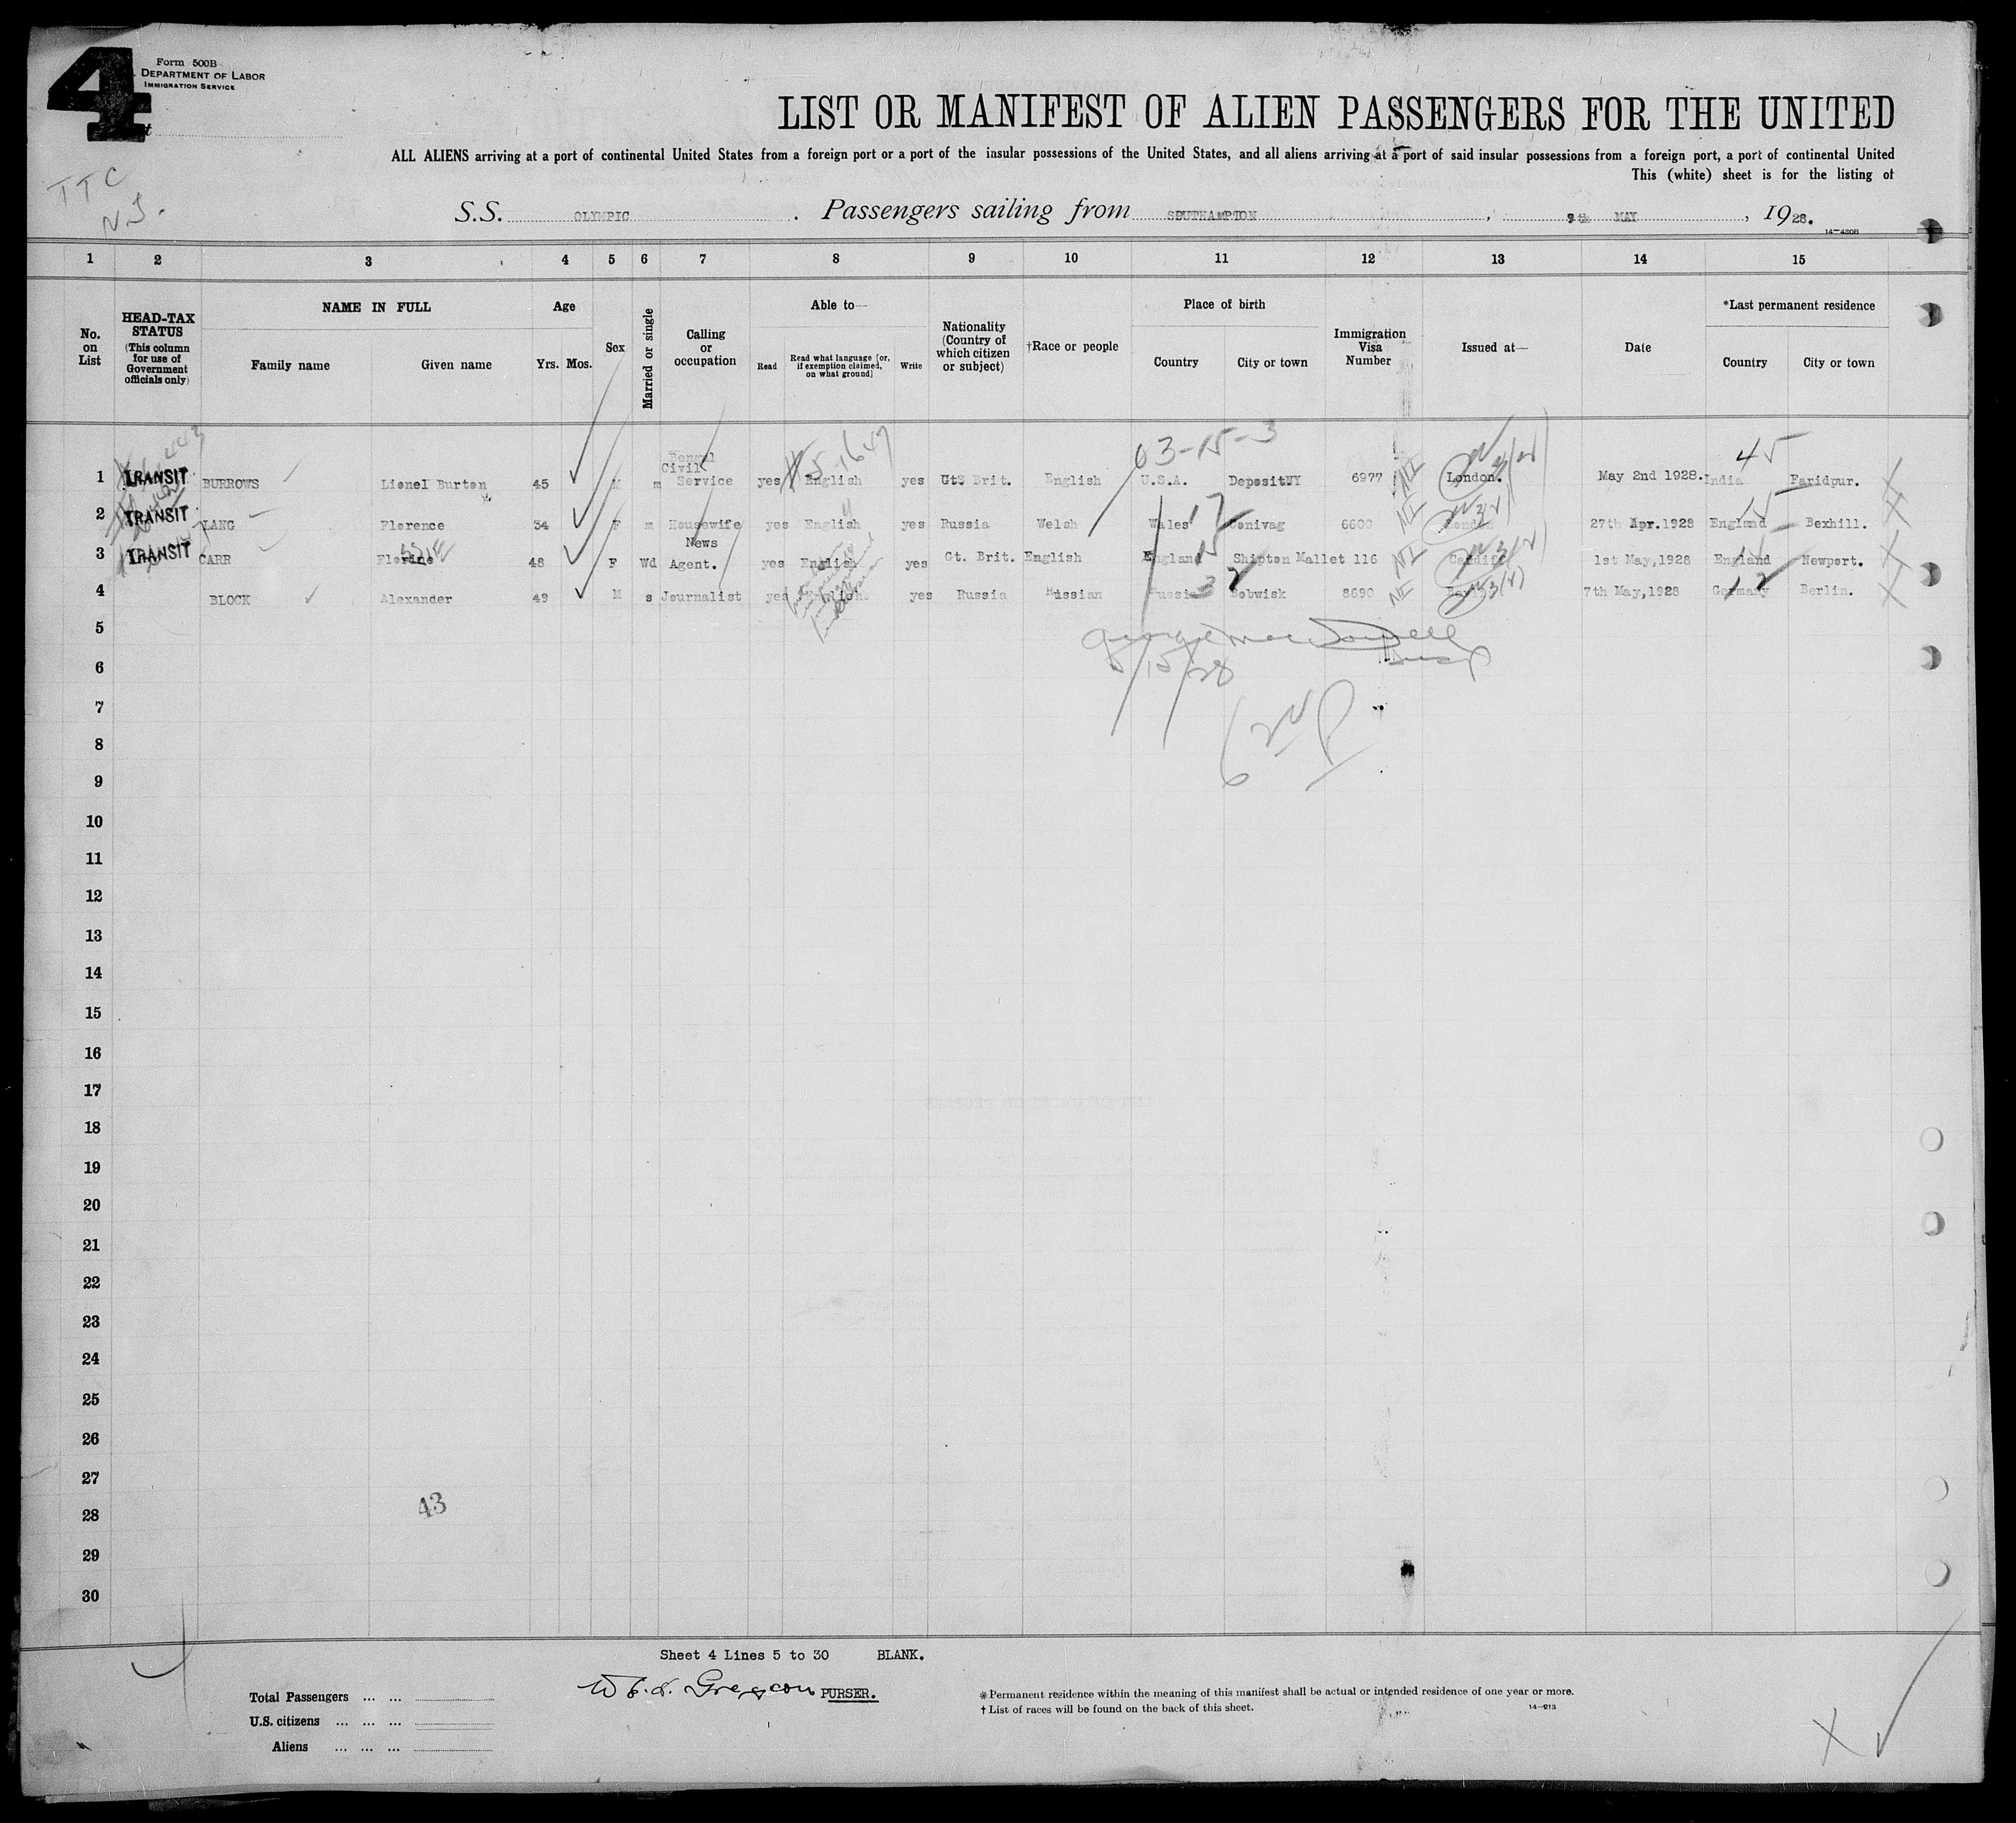 4
Form 500B
DEPARTMENT OF LABOR
IMMIGRATION SERVICE
TTC
N.J.
LIST OR MANIFEST OF ALIEN PASSENGERS FOR THE UNITED
ALL ALIENS arriving at a port of continental United States from a foreign port or a port of the insular possessions of the United States, and all aliens arriving at a port of said insular possessions from a foreign port, a port of continental United
This (white) sheet is for the listing of
S.S. OLYMPIC . Passengers sailing from SOUTHAMPTON , 9th MAY , 1928.
14-4208
1 2 3 4 5 6 7 8 9 10 11 12 13 14 15
No. on List
HEAD-TAX STATUS
(This column for use of Government officials only)
NAME IN FULL
Family name Given name
Age
Yrs. Mos.
Sex
Married or single
Calling or occupation
Able to—
Read Read what language [or, if exemption claimed, on what ground] Write
Nationality (Country of which citizen or subject)
†Race or people
Place of birth
Country City or town
Immigration Visa Number
Issued at—
Date
*Last permanent residence
Country City or town
03-15-3
45
5-1647
1 TRANSIT BURROWS Lionel Burton 45 M m Bengal Civil Service yes English yes Gt Brit. English U.S.A. Deposit NY 6977 London. May 2nd 1928. India Faridpur.
2 TRANSIT LANG Florence 34 F m Housewife yes English yes Russia Welsh Wales Conivag 6600 London 27th Apr. 1928 England Bexhill.
3 TRANSIT CARR Florine 48 F Wd News Agent. yes English yes Gt. Brit. English England Shipton Mallet 116 Cardiff 1st May, 1928 England Newport.
4 BLOCK Alexander 49 M s Journalist yes English yes Russia Russian Russia Bobwisk 8690 7th May, 1928 Germany Berlin.
5
6 5/15/28
7
8
9
10
11
12
13
14
15
16
17
18
19
20
21
22
23
24
25
26
27
28 43
29
30
Sheet 4 Lines 5 to 30 BLANK.
PURSER.
Total Passengers ... ...
U.S. citizens ... ... ...
Aliens ... ... ...
* Permanent residence within the meaning of this manifest shall be actual or intended residence of one year or more.
† List of races will be found on the back of this sheet.
14-213